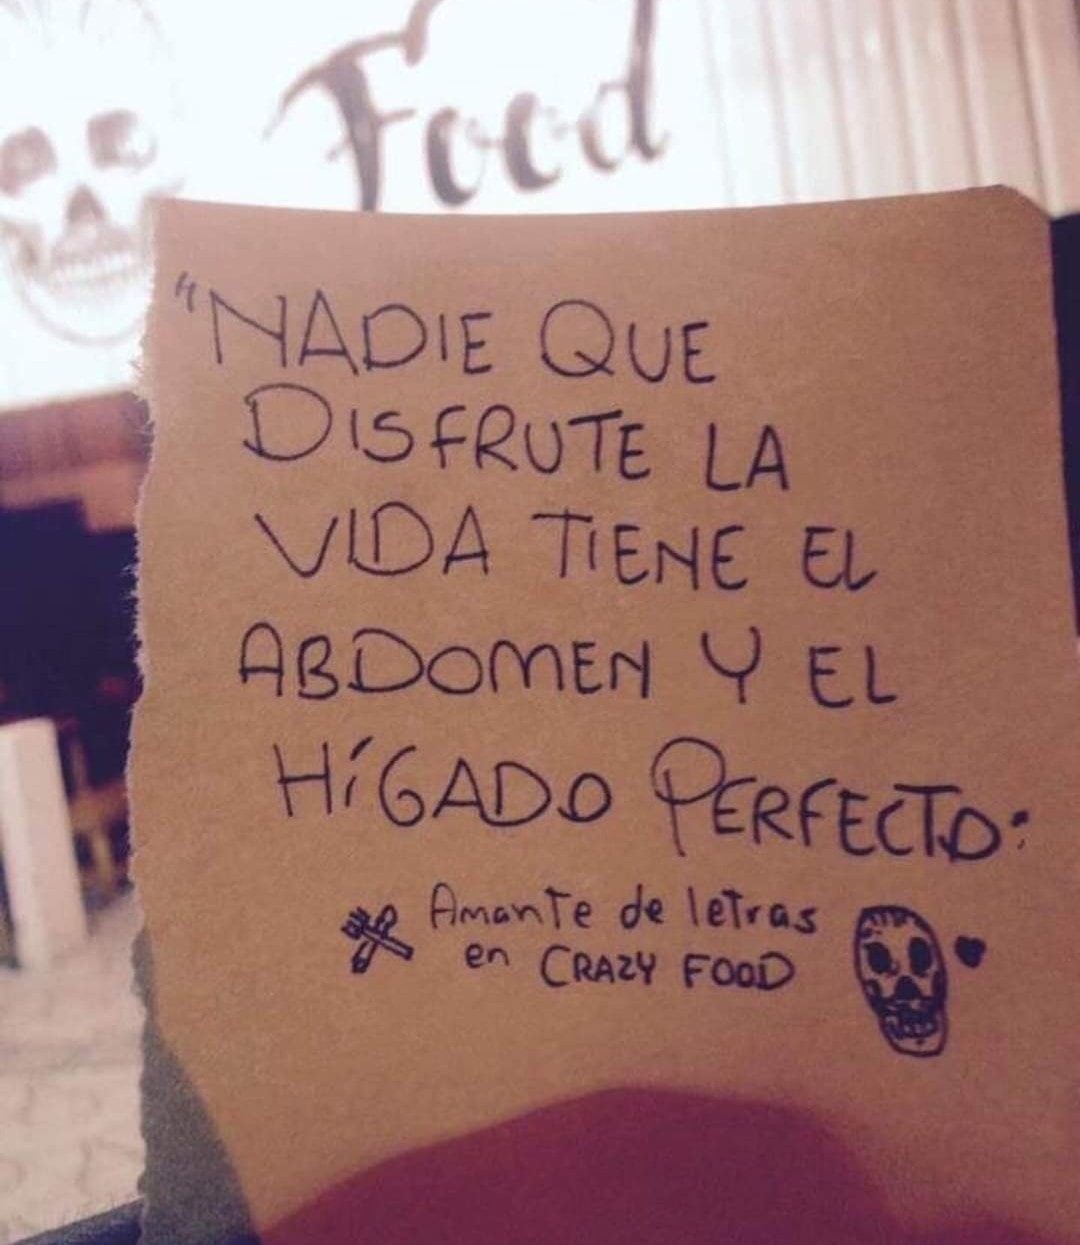 Food
"NADIE QUE
DISFRUTE LA
VIDA TIENE EL
ABDOMEN Y EL
HÍGADO PERFECTO:
Amante de letras
en CRAZY FOOD